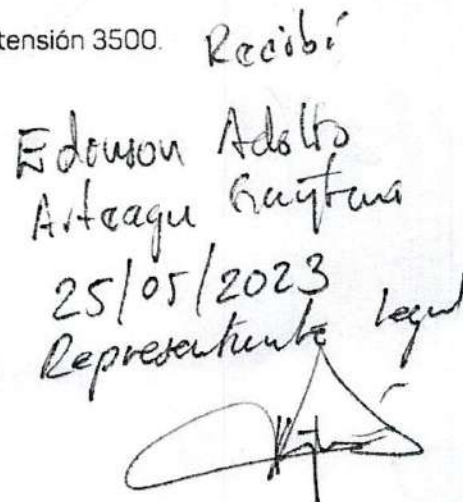 tensión 3500.
Recibí
Edouson Adolfo
Arteaga
25/05/2023
Representante legal